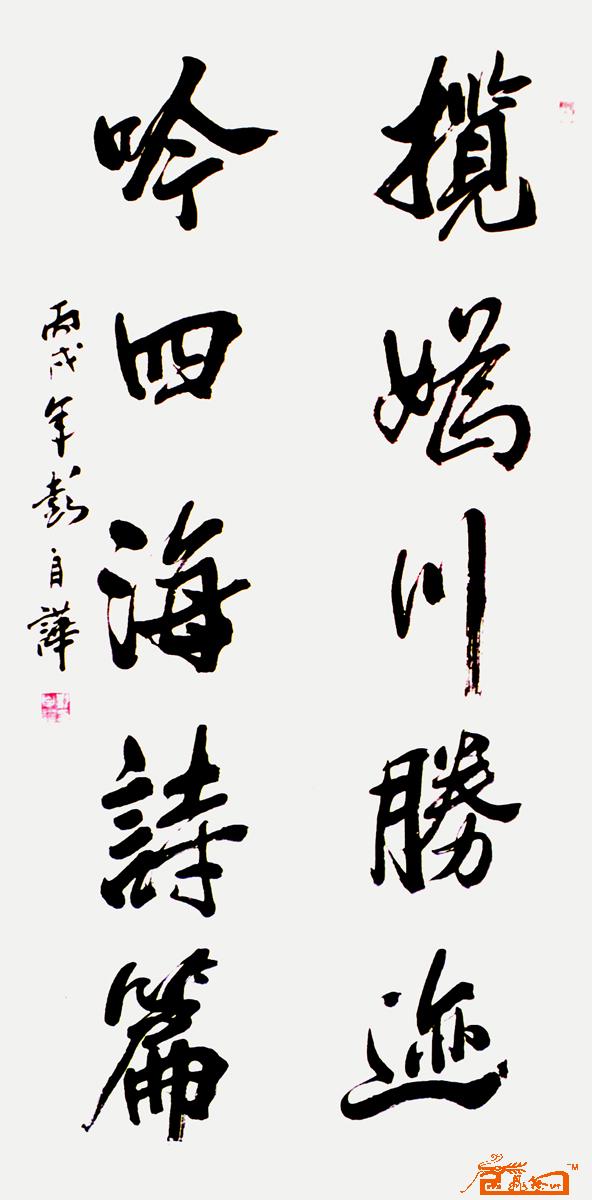 攬媯川勝迹
吟四海詩篇
丙戌年彭自譁